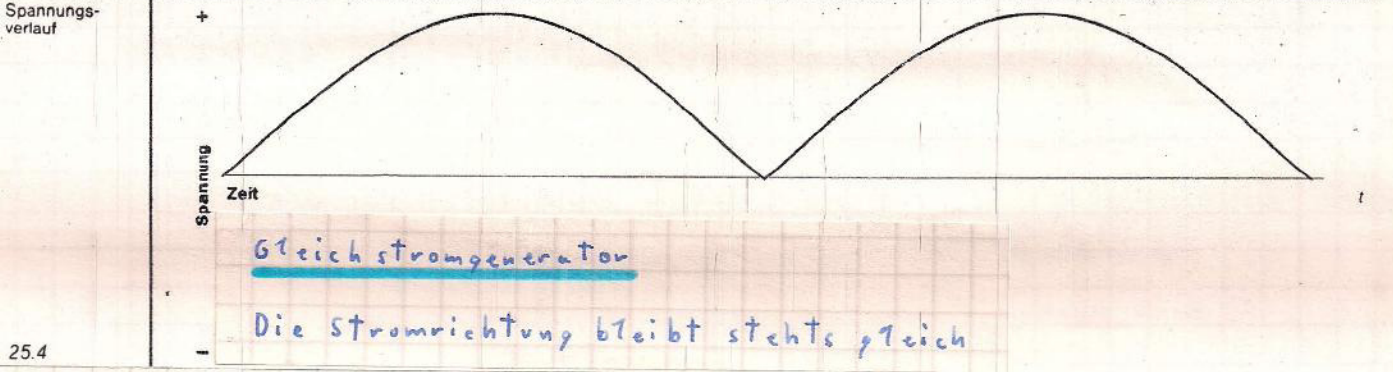 Spannungs-
verlauf
+
Spannung
Zeit
t
Gleichstromgenerator
Die Stromrichtung bleibt stehts gleich
25.4
–